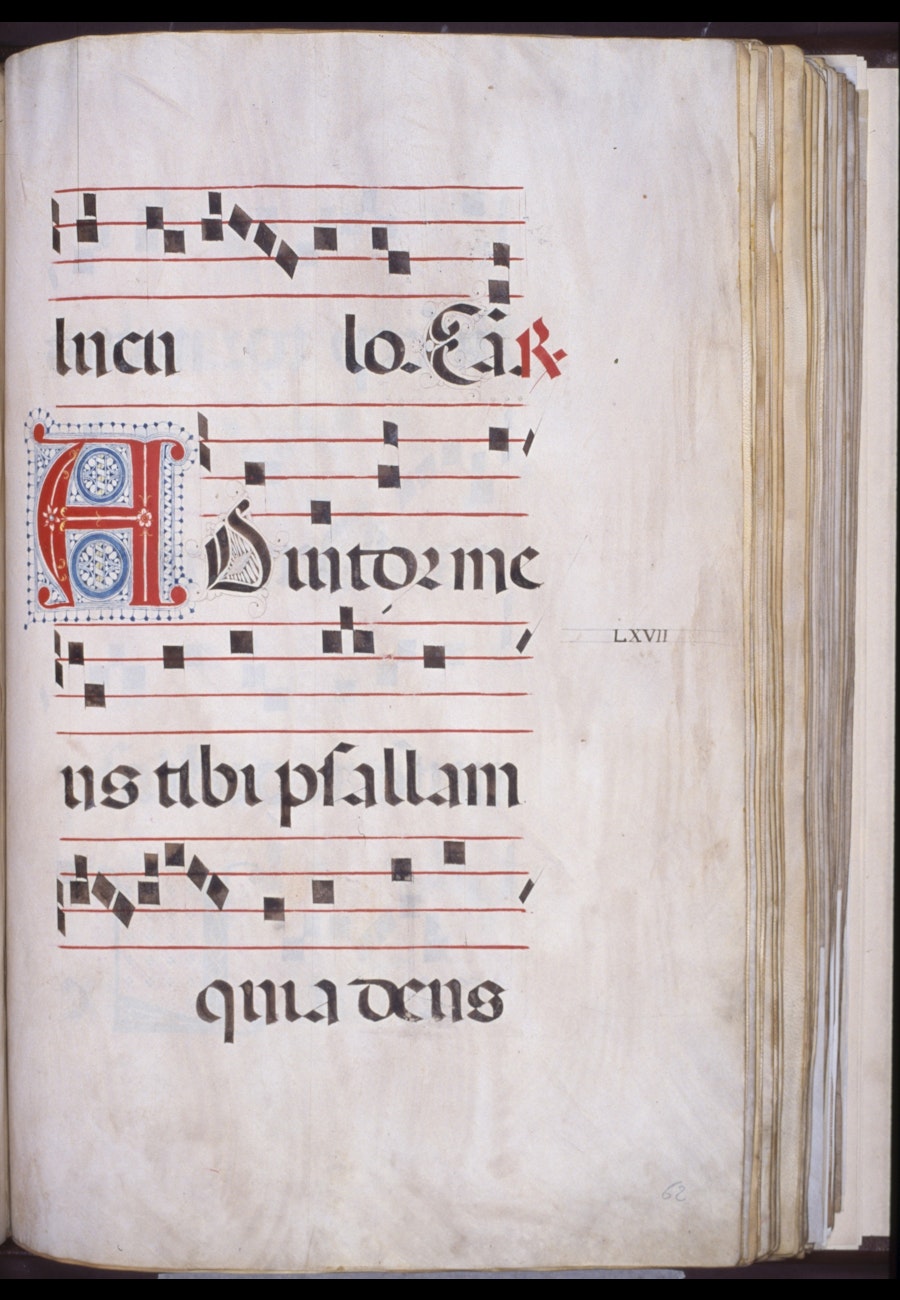 lucu lo. Et i. R.
ADiutor me
LXVII
us tibi psallam
quia deus
62